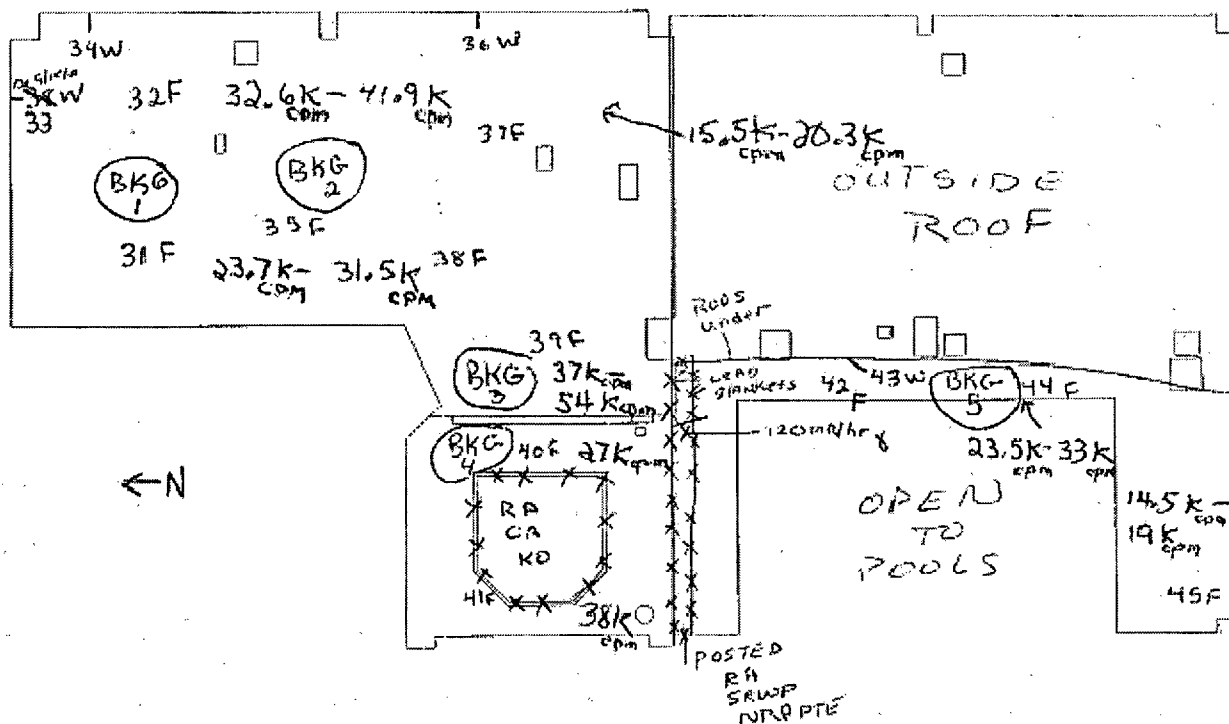 34W
36W
38W
33
32F
32.6K - 41.9K
cpm cpm
37F
15.5K-20.3K
cpm cpm
OUTSIDE
ROOF
BKG
1
BKG
2
35F
31F
23.7K- 31.5K
cpm cpm
38F
RODS
under
39F
BKG
3
37K cpm-
54K cpm
LEAD
BLANKETS
42
F
43W
BKG
5
44F
120mR/hr γ
BKG
4
40F
27K cpm
23.5K-33K
cpm cpm
←N
RA
CA
KO
OPEN
TO
POOLS
14.5K-
cpm
19K
cpm
41F
38K
cpm
45F
POSTED
RA
SRWP
NRPPTE